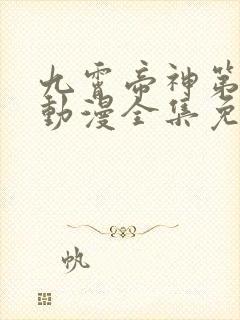 九霄帝神第
動漫全集免
帆